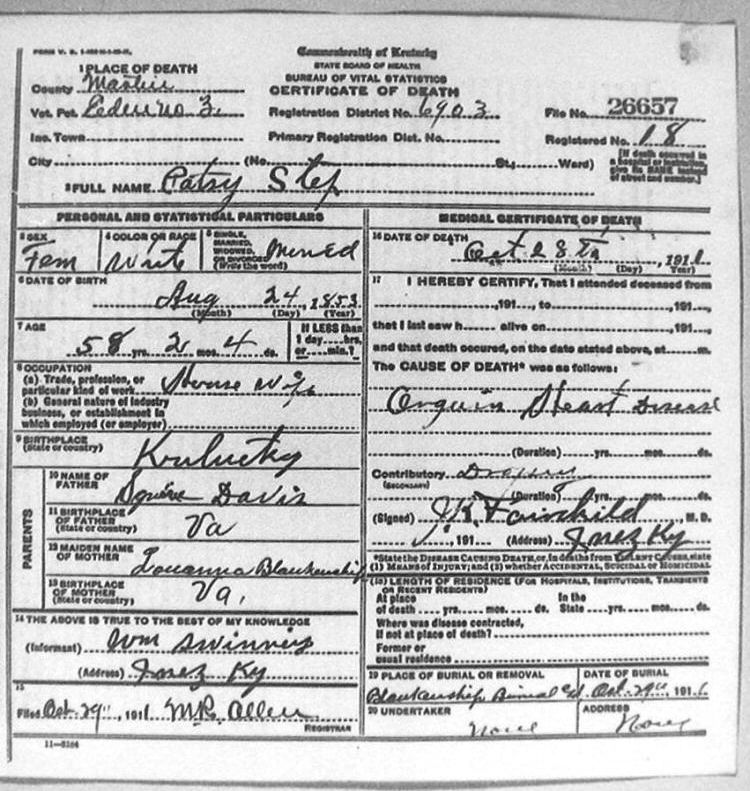 FORM V. S.
Commonwealth of Kentucky
STATE BOARD OF HEALTH
BUREAU OF VITAL STATISTICS
CERTIFICATE OF DEATH
1 PLACE OF DEATH
County Martin
Vot. Pct. No 3. Registration District No. 6903 File No. 26657
Inc. Town Primary Registration Dist. No. Registered No. 18
City (No. St.; Ward) [If death occurred in a hospital or institution, give its NAME instead of street and number.]
2 FULL NAME Patsy Step
PERSONAL AND STATISTICAL PARTICULARS
3 SEX Fem
4 COLOR OR RACE White
5 SINGLE, MARRIED, WIDOWED, OR DIVORCED (Write the word)
6 DATE OF BIRTH
Aug 24, 1853
(Month) (Day) (Year)
7 AGE
58 yrs. 2 mos. 4 ds.
If LESS than 1 day....hrs. or....min.?
8 OCCUPATION
(a) Trade, profession, or particular kind of work House Wife
(b) General nature of industry business, or establishment in which employed (or employer)
9 BIRTHPLACE (State or country) Kentucky
PARENTS
10 NAME OF FATHER Squire Davis
11 BIRTHPLACE OF FATHER (State or country) Va
12 MAIDEN NAME OF MOTHER Louanna Blankenship
13 BIRTHPLACE OF MOTHER (State or country) Va.
14 THE ABOVE IS TRUE TO THE BEST OF MY KNOWLEDGE
(Informant) Wm
(Address) Inez Ky
15
Filed Oct. 29", 1911 Allen
REGISTRAR
11—3184
MEDICAL CERTIFICATE OF DEATH
16 DATE OF DEATH Oct 28th, 1911
(Month) (Day) (Year)
17 I HEREBY CERTIFY, That I attended deceased from
, 191 , to , 191 ,
that I last saw h alive on , 191 ,
and that death occured, on the date stated above, at m.
The CAUSE OF DEATH* was as follows:
Heart Disease
(Duration) yrs. mos. ds.
Contributory Dropsy
(SECONDARY)
(Duration) yrs. mos. ds.
(Signed) Fairchild, M. D.
, 191 (Address) Inez Ky
*State the DISEASE CAUSING DEATH, or, in deaths from VIOLENT CAUSES, state (1) MEANS OF INJURY; and (2) whether ACCIDENTAL, SUICIDAL or HOMICIDAL
(18) LENGTH OF RESIDENCE (FOR HOSPITALS, INSTITUTIONS, TRANSIENTS OR RECENT RESIDENTS)
At place of death yrs. mos. ds. In the State yrs. mos. ds.
Where was disease contracted, if not at place of death?
Former or usual residence
19 PLACE OF BURIAL OR REMOVAL DATE OF BURIAL
Blankenship Oct. 29", 1911
20 UNDERTAKER ADDRESS
None None